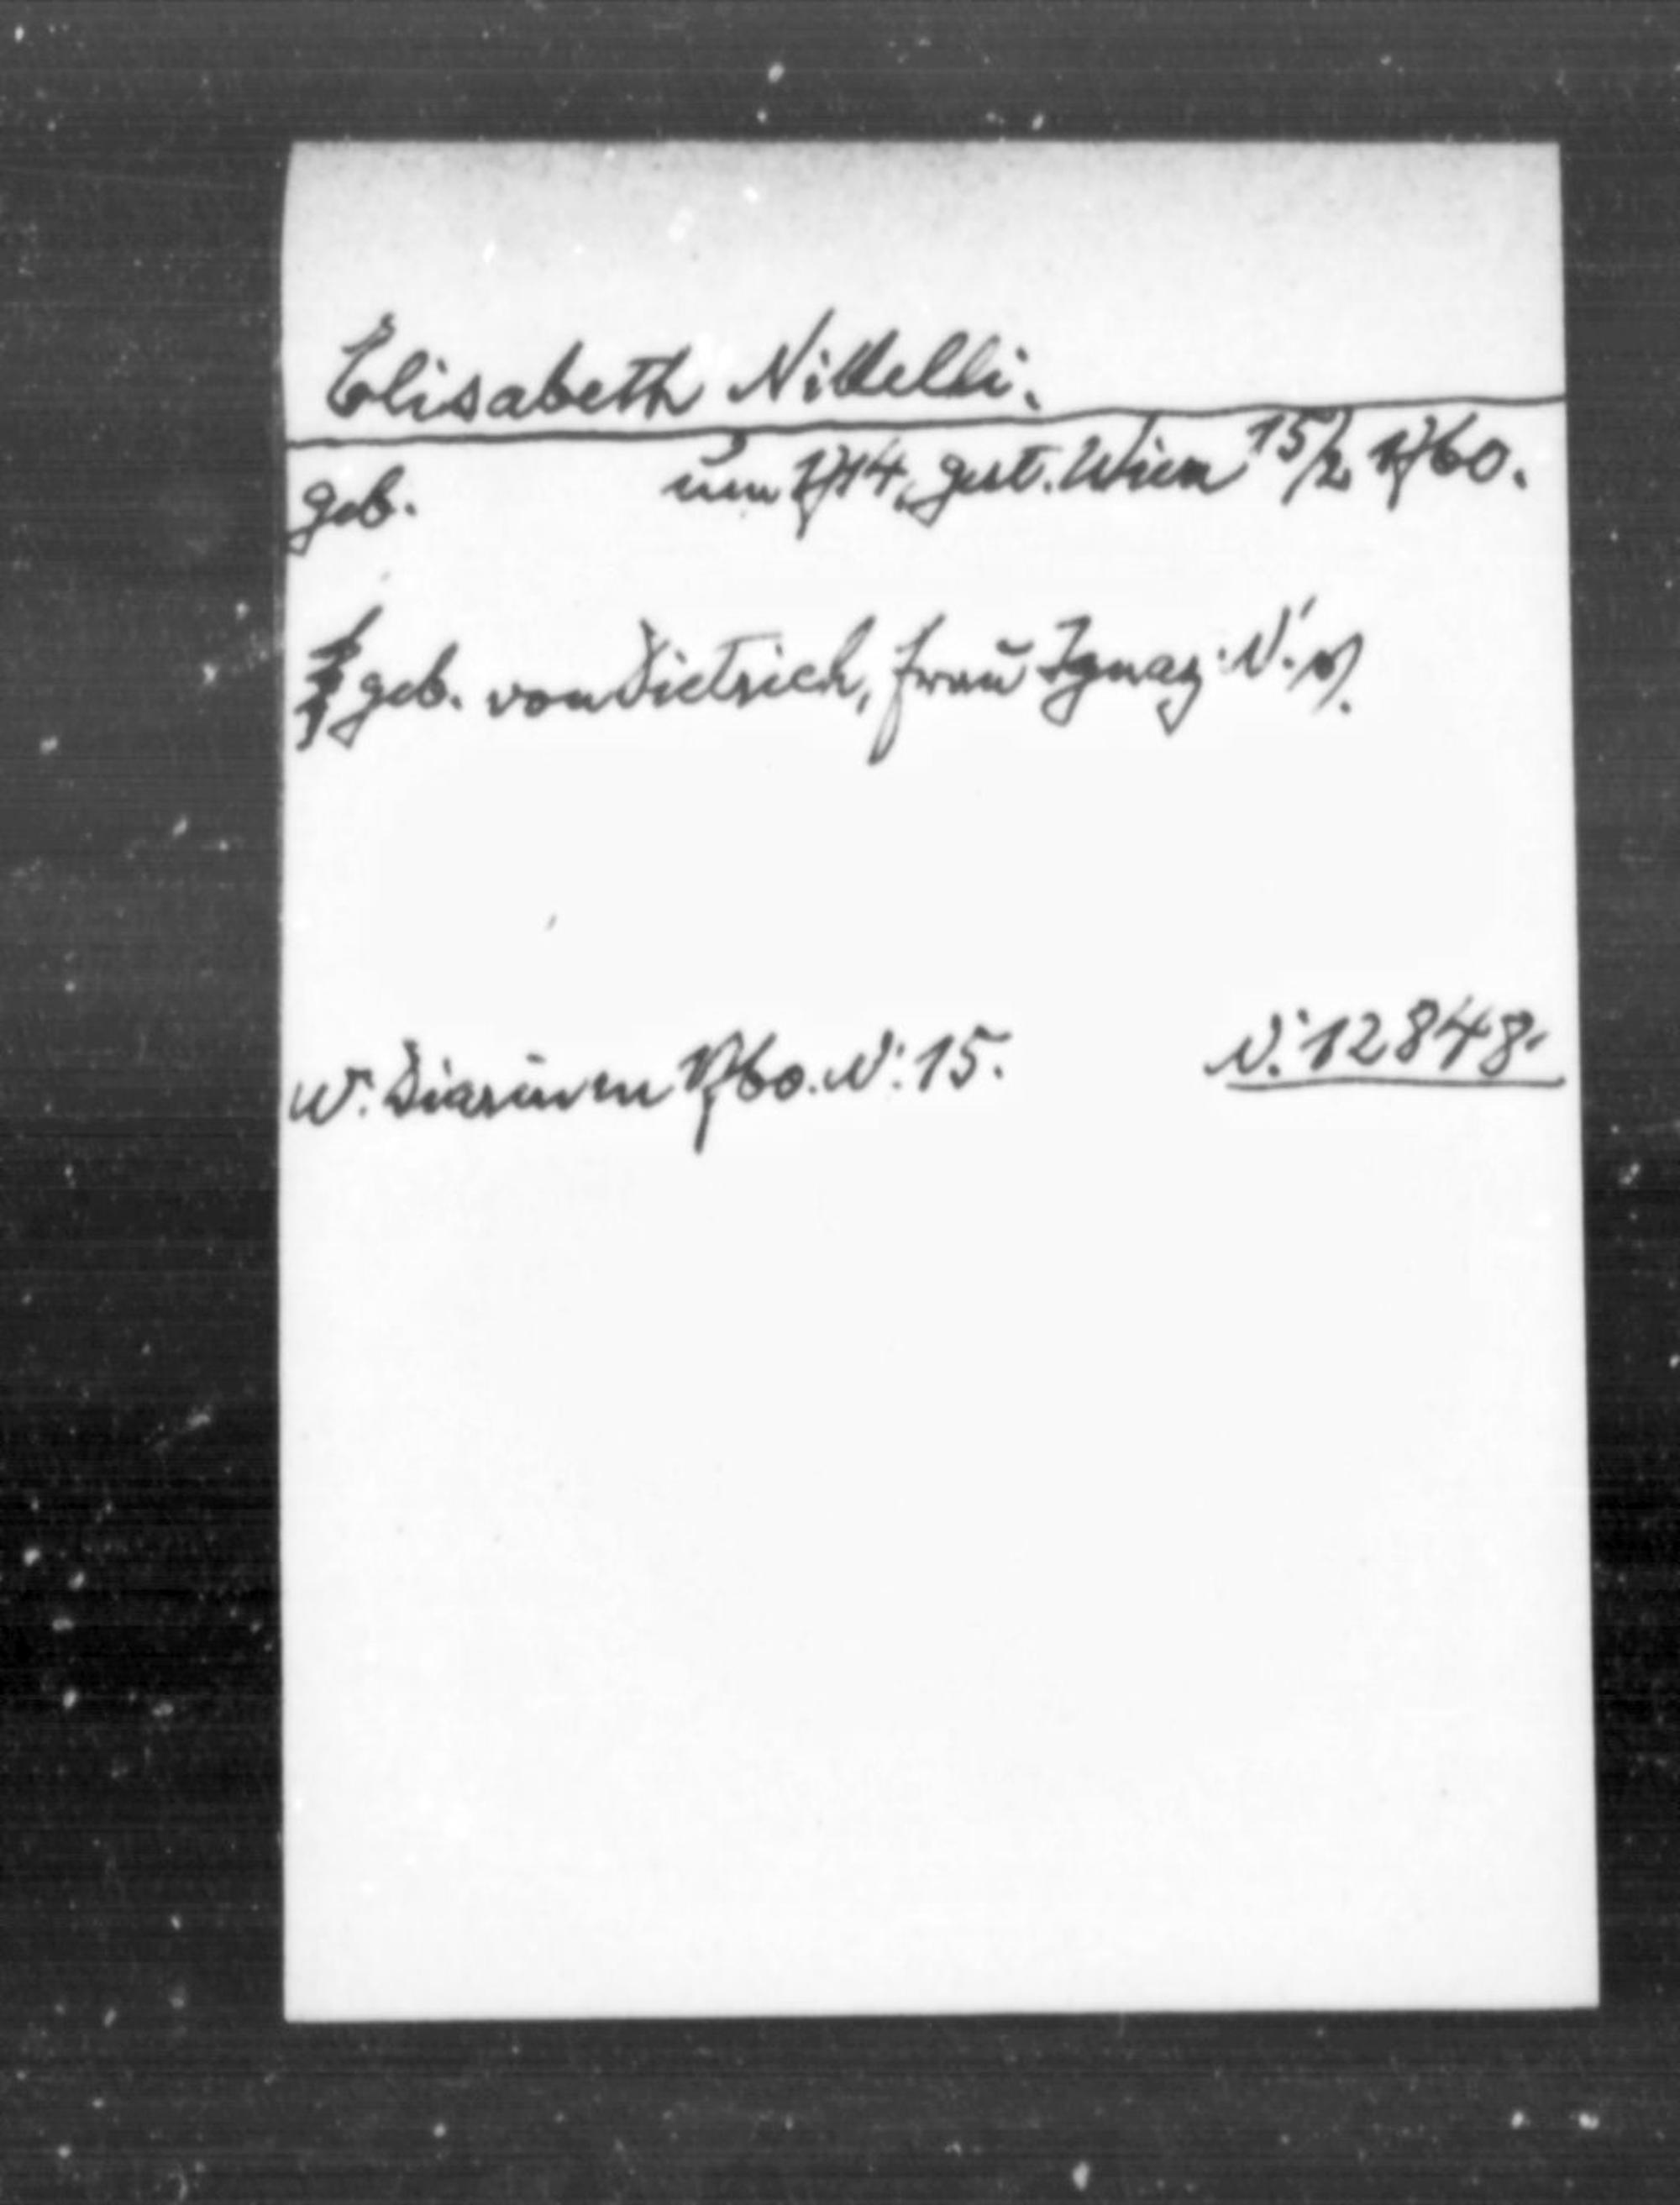 Elisabeth Nittelli.
geb. um 1714, gest. Wien 15/2 1760.
geb. von Dietrich, Frau Ignaz N.
W. Diarium 1760. N: 15. N: 12848.